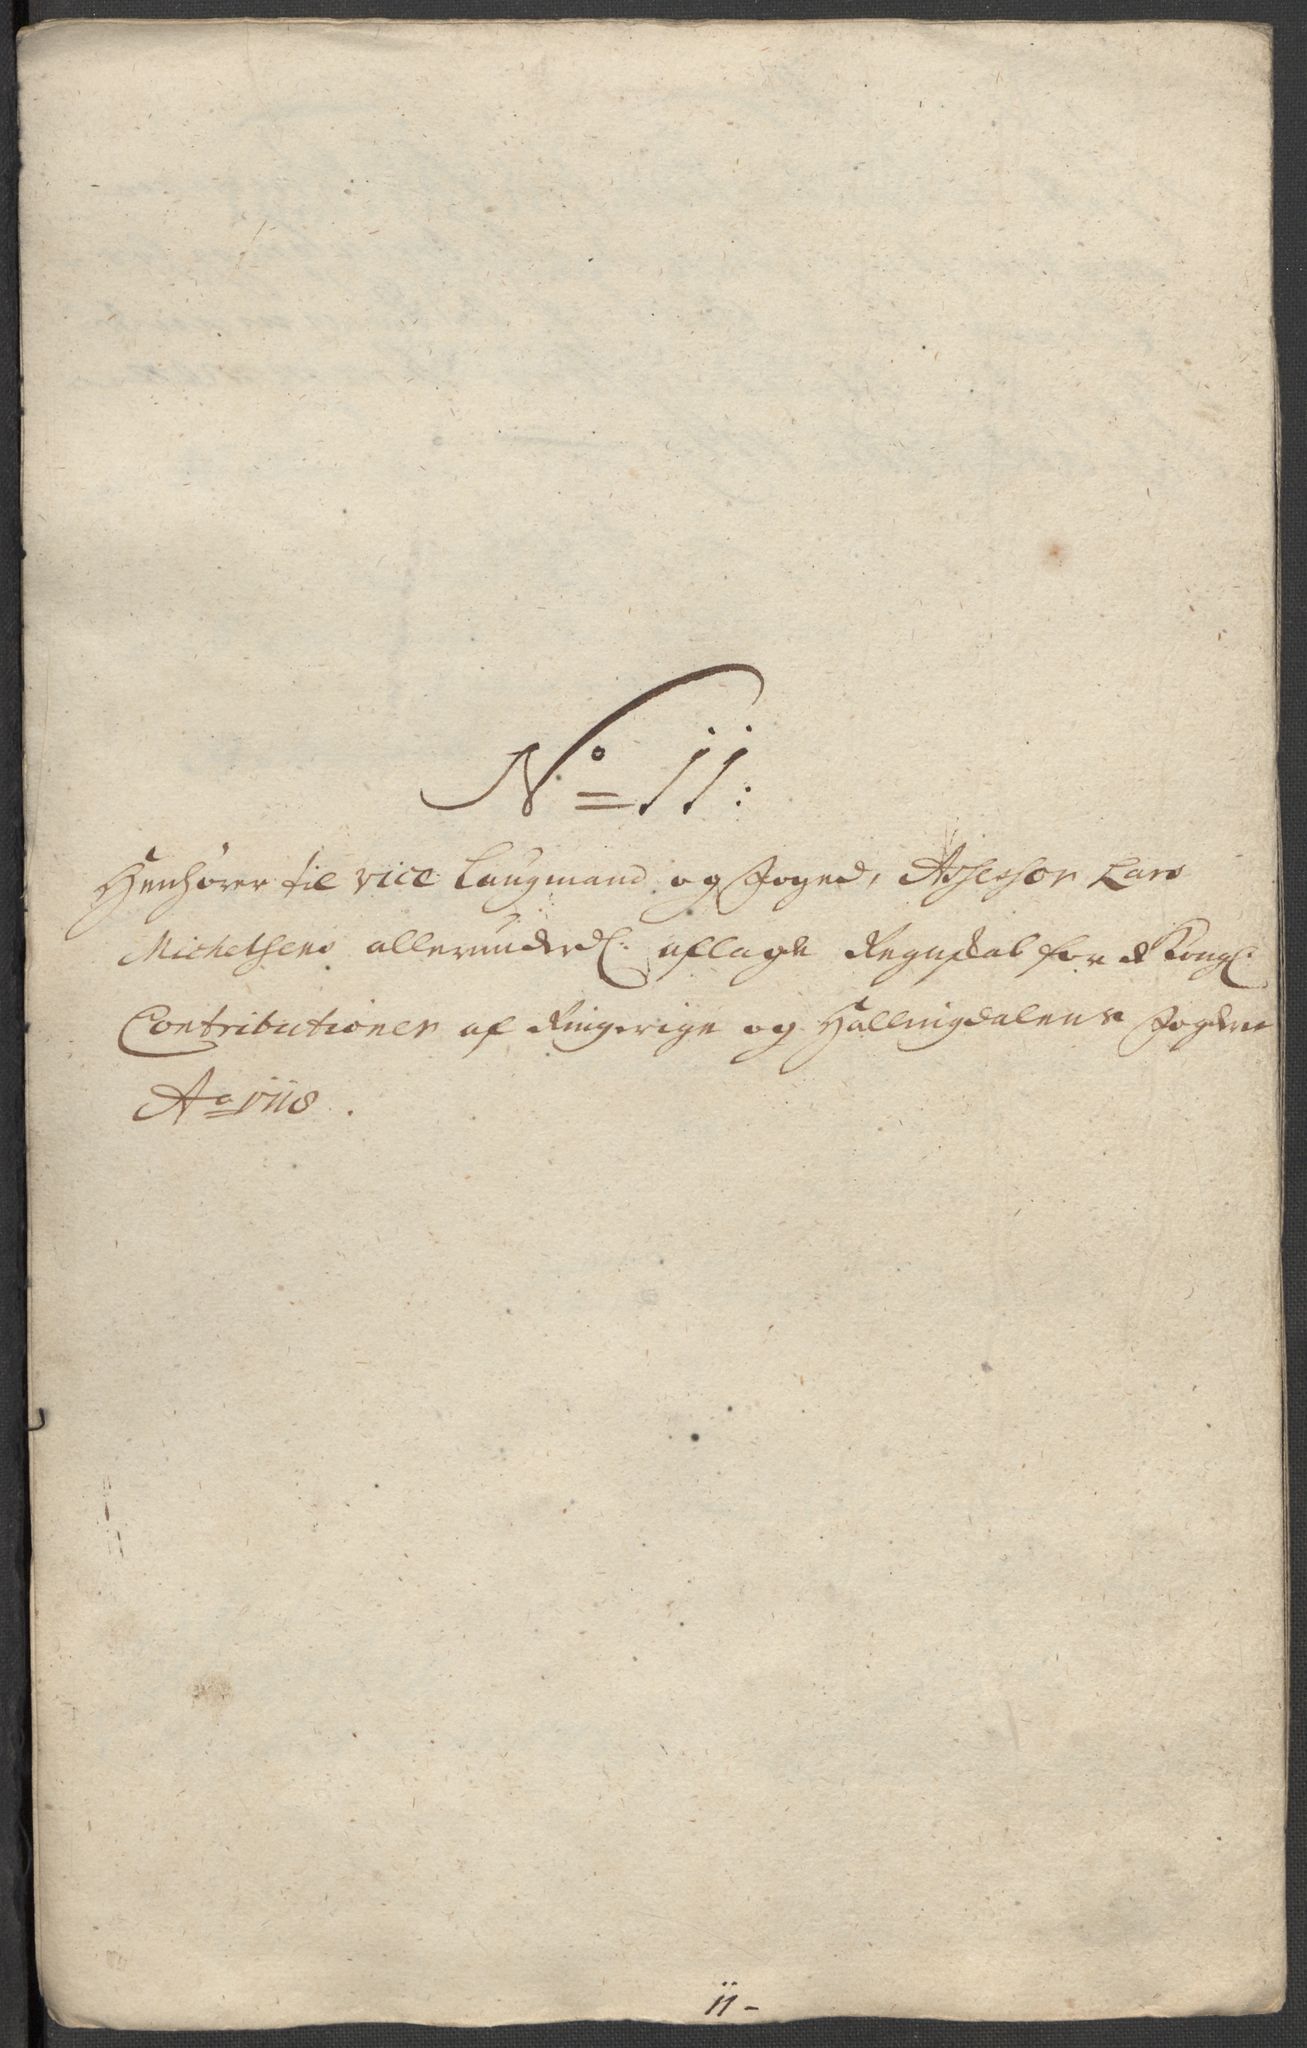 No 11:
Henhører til vice Laugmand og Foged, Assessor Lars
Michelsens allerunderd: aflagde Regnskab for d Kongl:
Contributioner af Ringerige og Hallingdalens Fogderie
Ao 1718.
11-